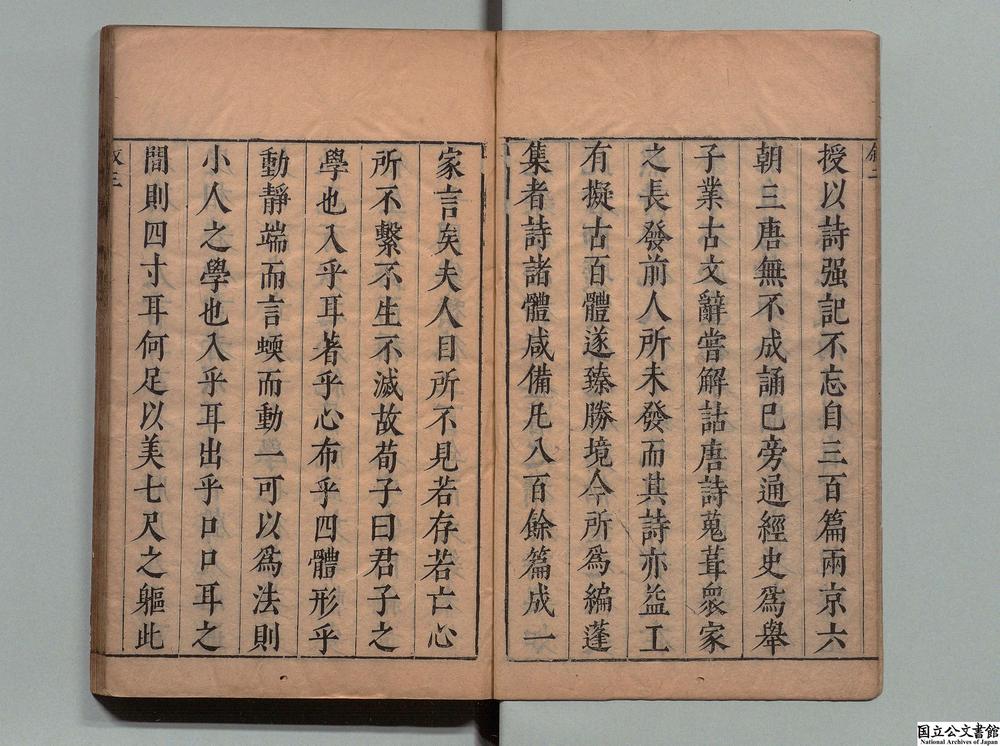 授以詩强記不忘自三百篇兩京六
朝三唐無不成誦已旁通經史爲舉
子業古文辭嘗解詁唐詩蒐葺衆家
之長發前人所未發而其詩亦益工
有擬古百體遂臻勝境今所爲編蓬
集者詩諸體咸備凡八百餘篇成一
家言矣夫人目所不見若存若亡心
所不繫不生不滅故荀子曰君子之
學也入乎耳著乎心布乎四體形乎
動靜端而言蝡而動一可以爲法則
小人之學也入乎耳出乎口口耳之
間則四寸耳何足以美七尺之軀此
国立公文書館
National Archives of Japan